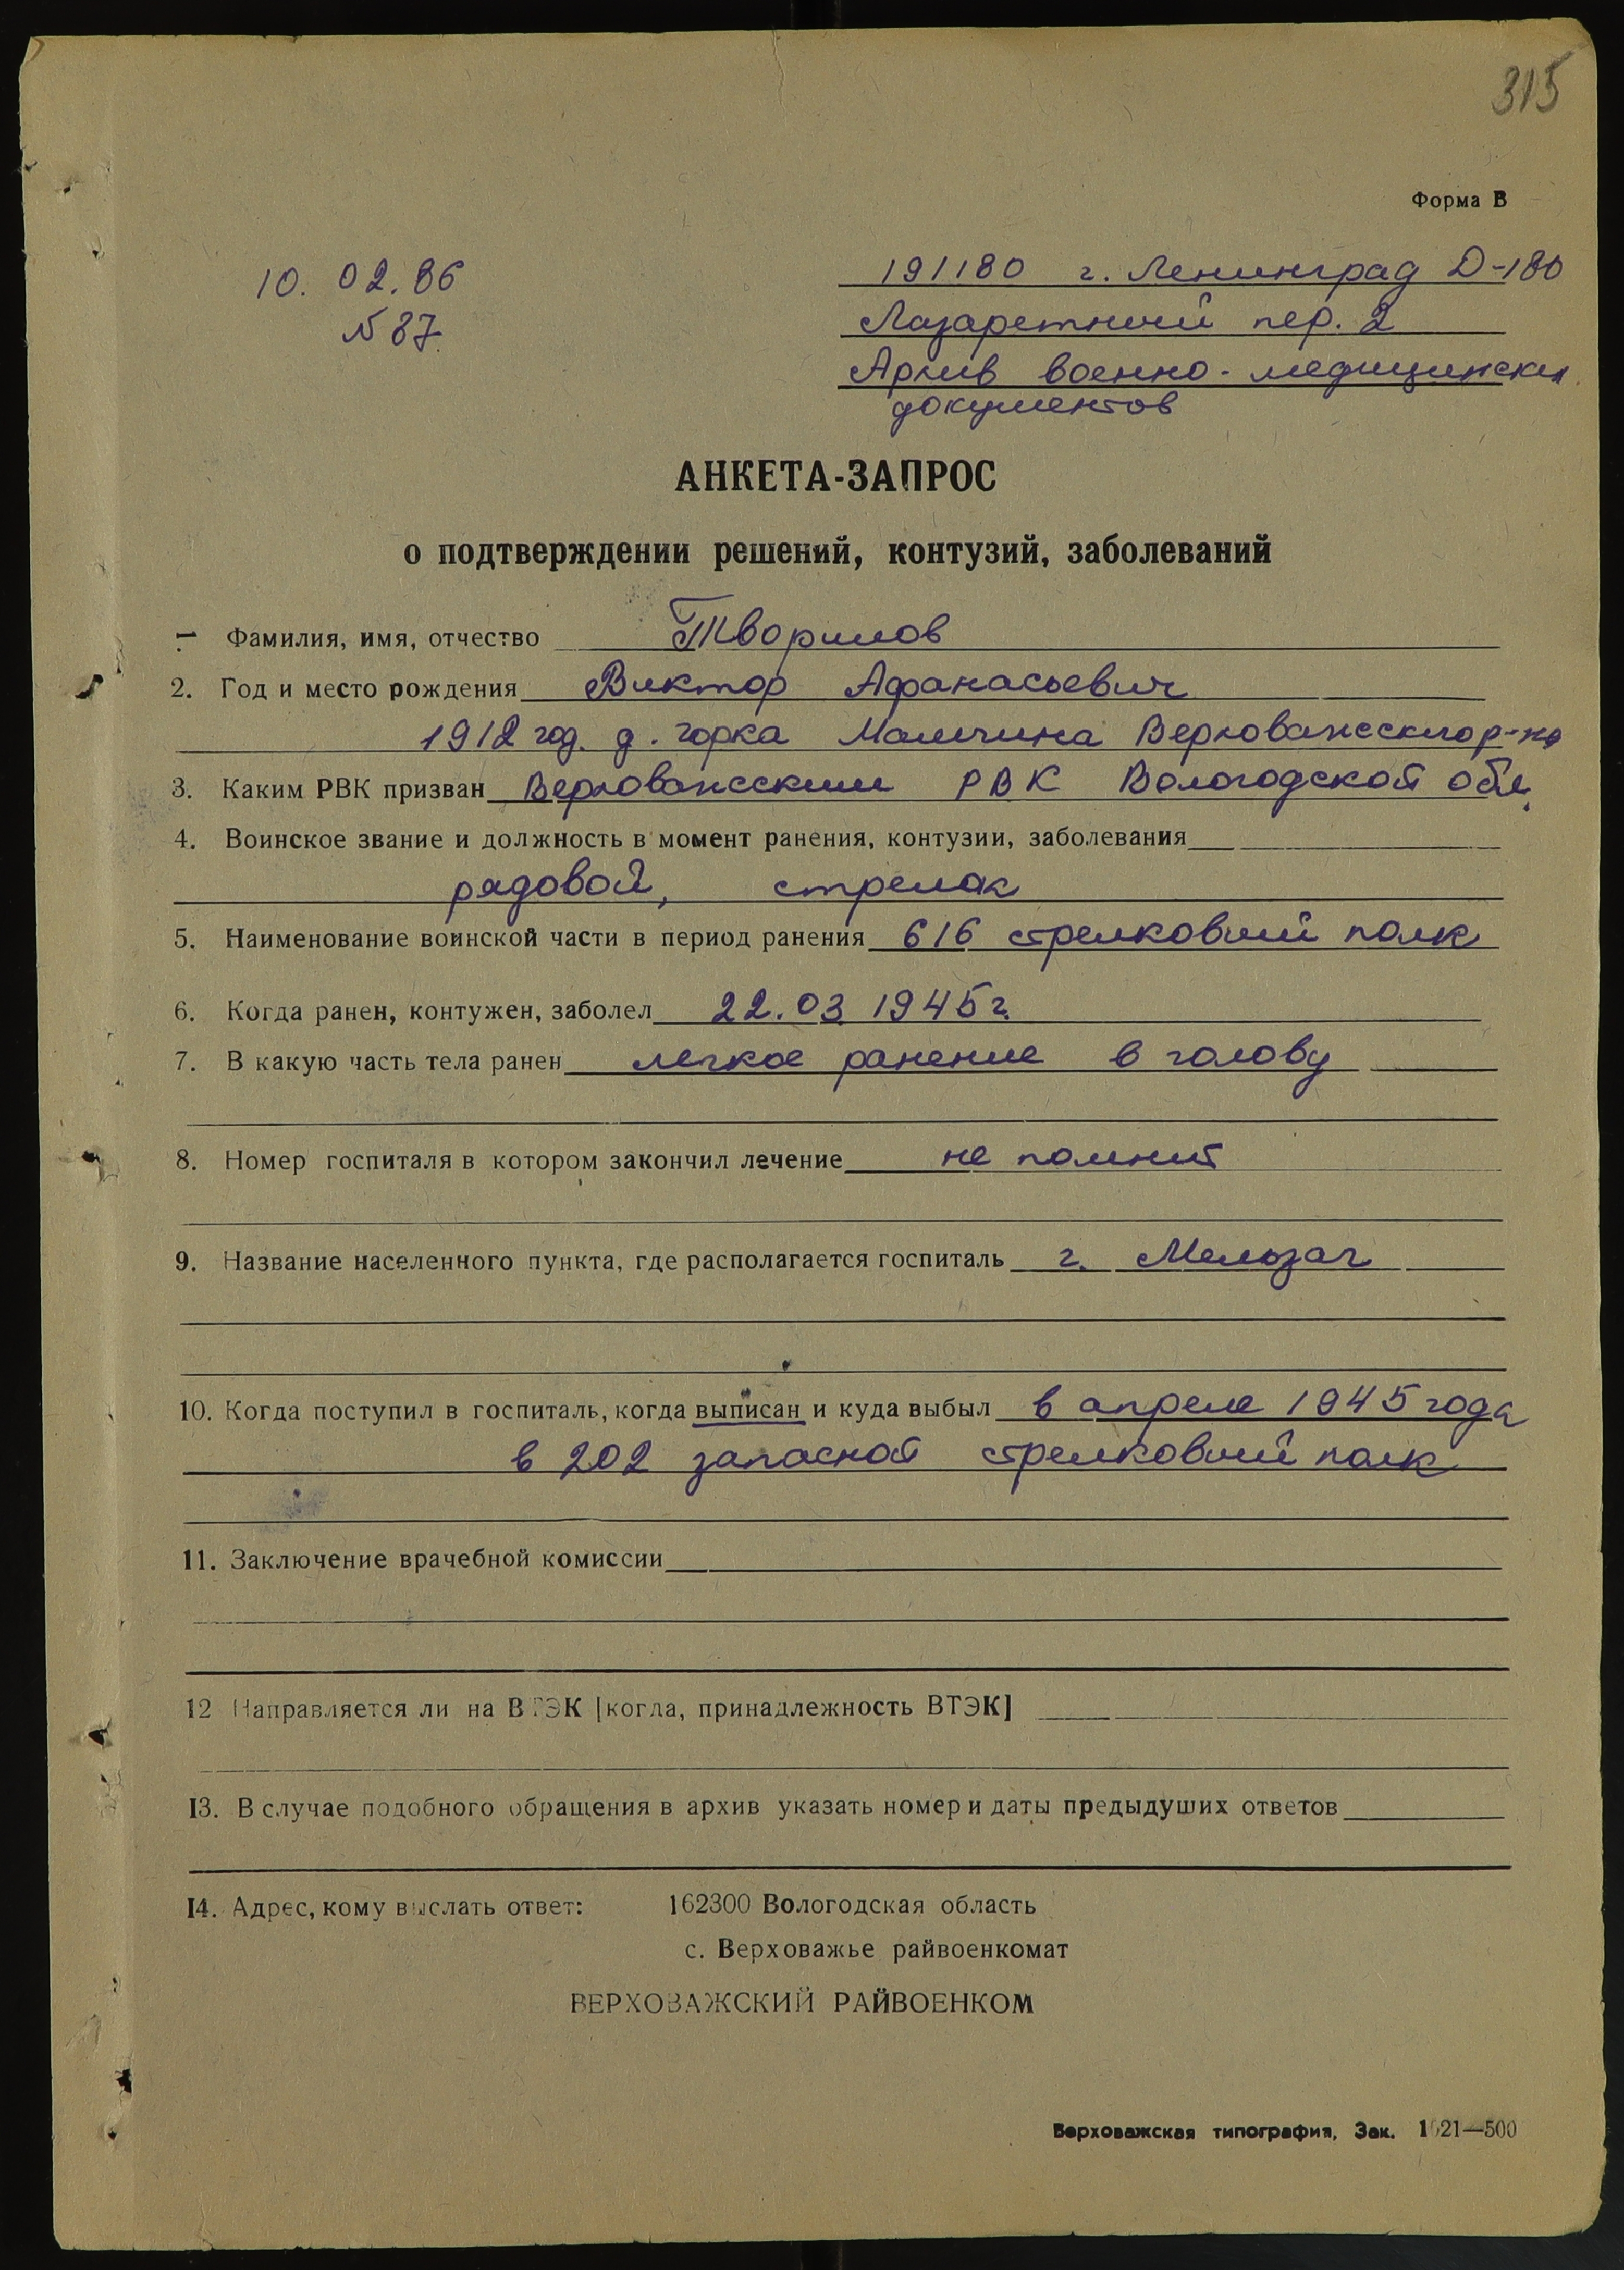 315
Форма В
10. 02. 86
№ 87
191180 г. Ленинград Д-180
Лазаретный пер. 2
Архив военно-медицинских
документов
АНКЕТА-ЗАПРОС
о подтверждении решений, контузий, заболеваний
1 Фамилия, имя, отчество Творилов
2. Год и место рождения Виктор Афанасьевич
1912 год. д. Горка Макарцево Верховажского р-на
3. Каким РВК призван Верховажским РВК Вологодской обл.
4. Воинское звание и должность в момент ранения, контузии, заболевания
рядовой, стрелок
5. Наименование воинской части в период ранения 616 стрелковый полк
6. Когда ранен, контужен, заболел 22.03 1945 г.
7. В какую часть тела ранен легкое ранение в голову
8. Номер госпиталя в котором закончил лечение не помнит
9. Название населенного пункта, где располагается госпиталь г. Мельзак
10. Когда поступил в госпиталь, когда выписан и куда выбыл в апреле 1945 года
в 202 запасной стрелковый полк
11. Заключение врачебной комиссии
12 Направляется ли на ВТЭК [когда, принадлежность ВТЭК]
13. В случае подобного обращения в архив указать номер и даты предыдуших ответов
14. Адрес, кому выслать ответ: 162300 Вологодская область
с. Верховажье райвоенкомат
ВЕРХОВАЖСКИЙ РАЙВОЕНКОМ
Верховажская типография, Зак. 1021—500